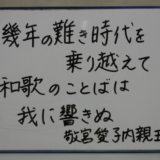 幾年の難き時代を
乗り越えて
和歌のことばは
我に響きぬ
敬宮愛子内親王